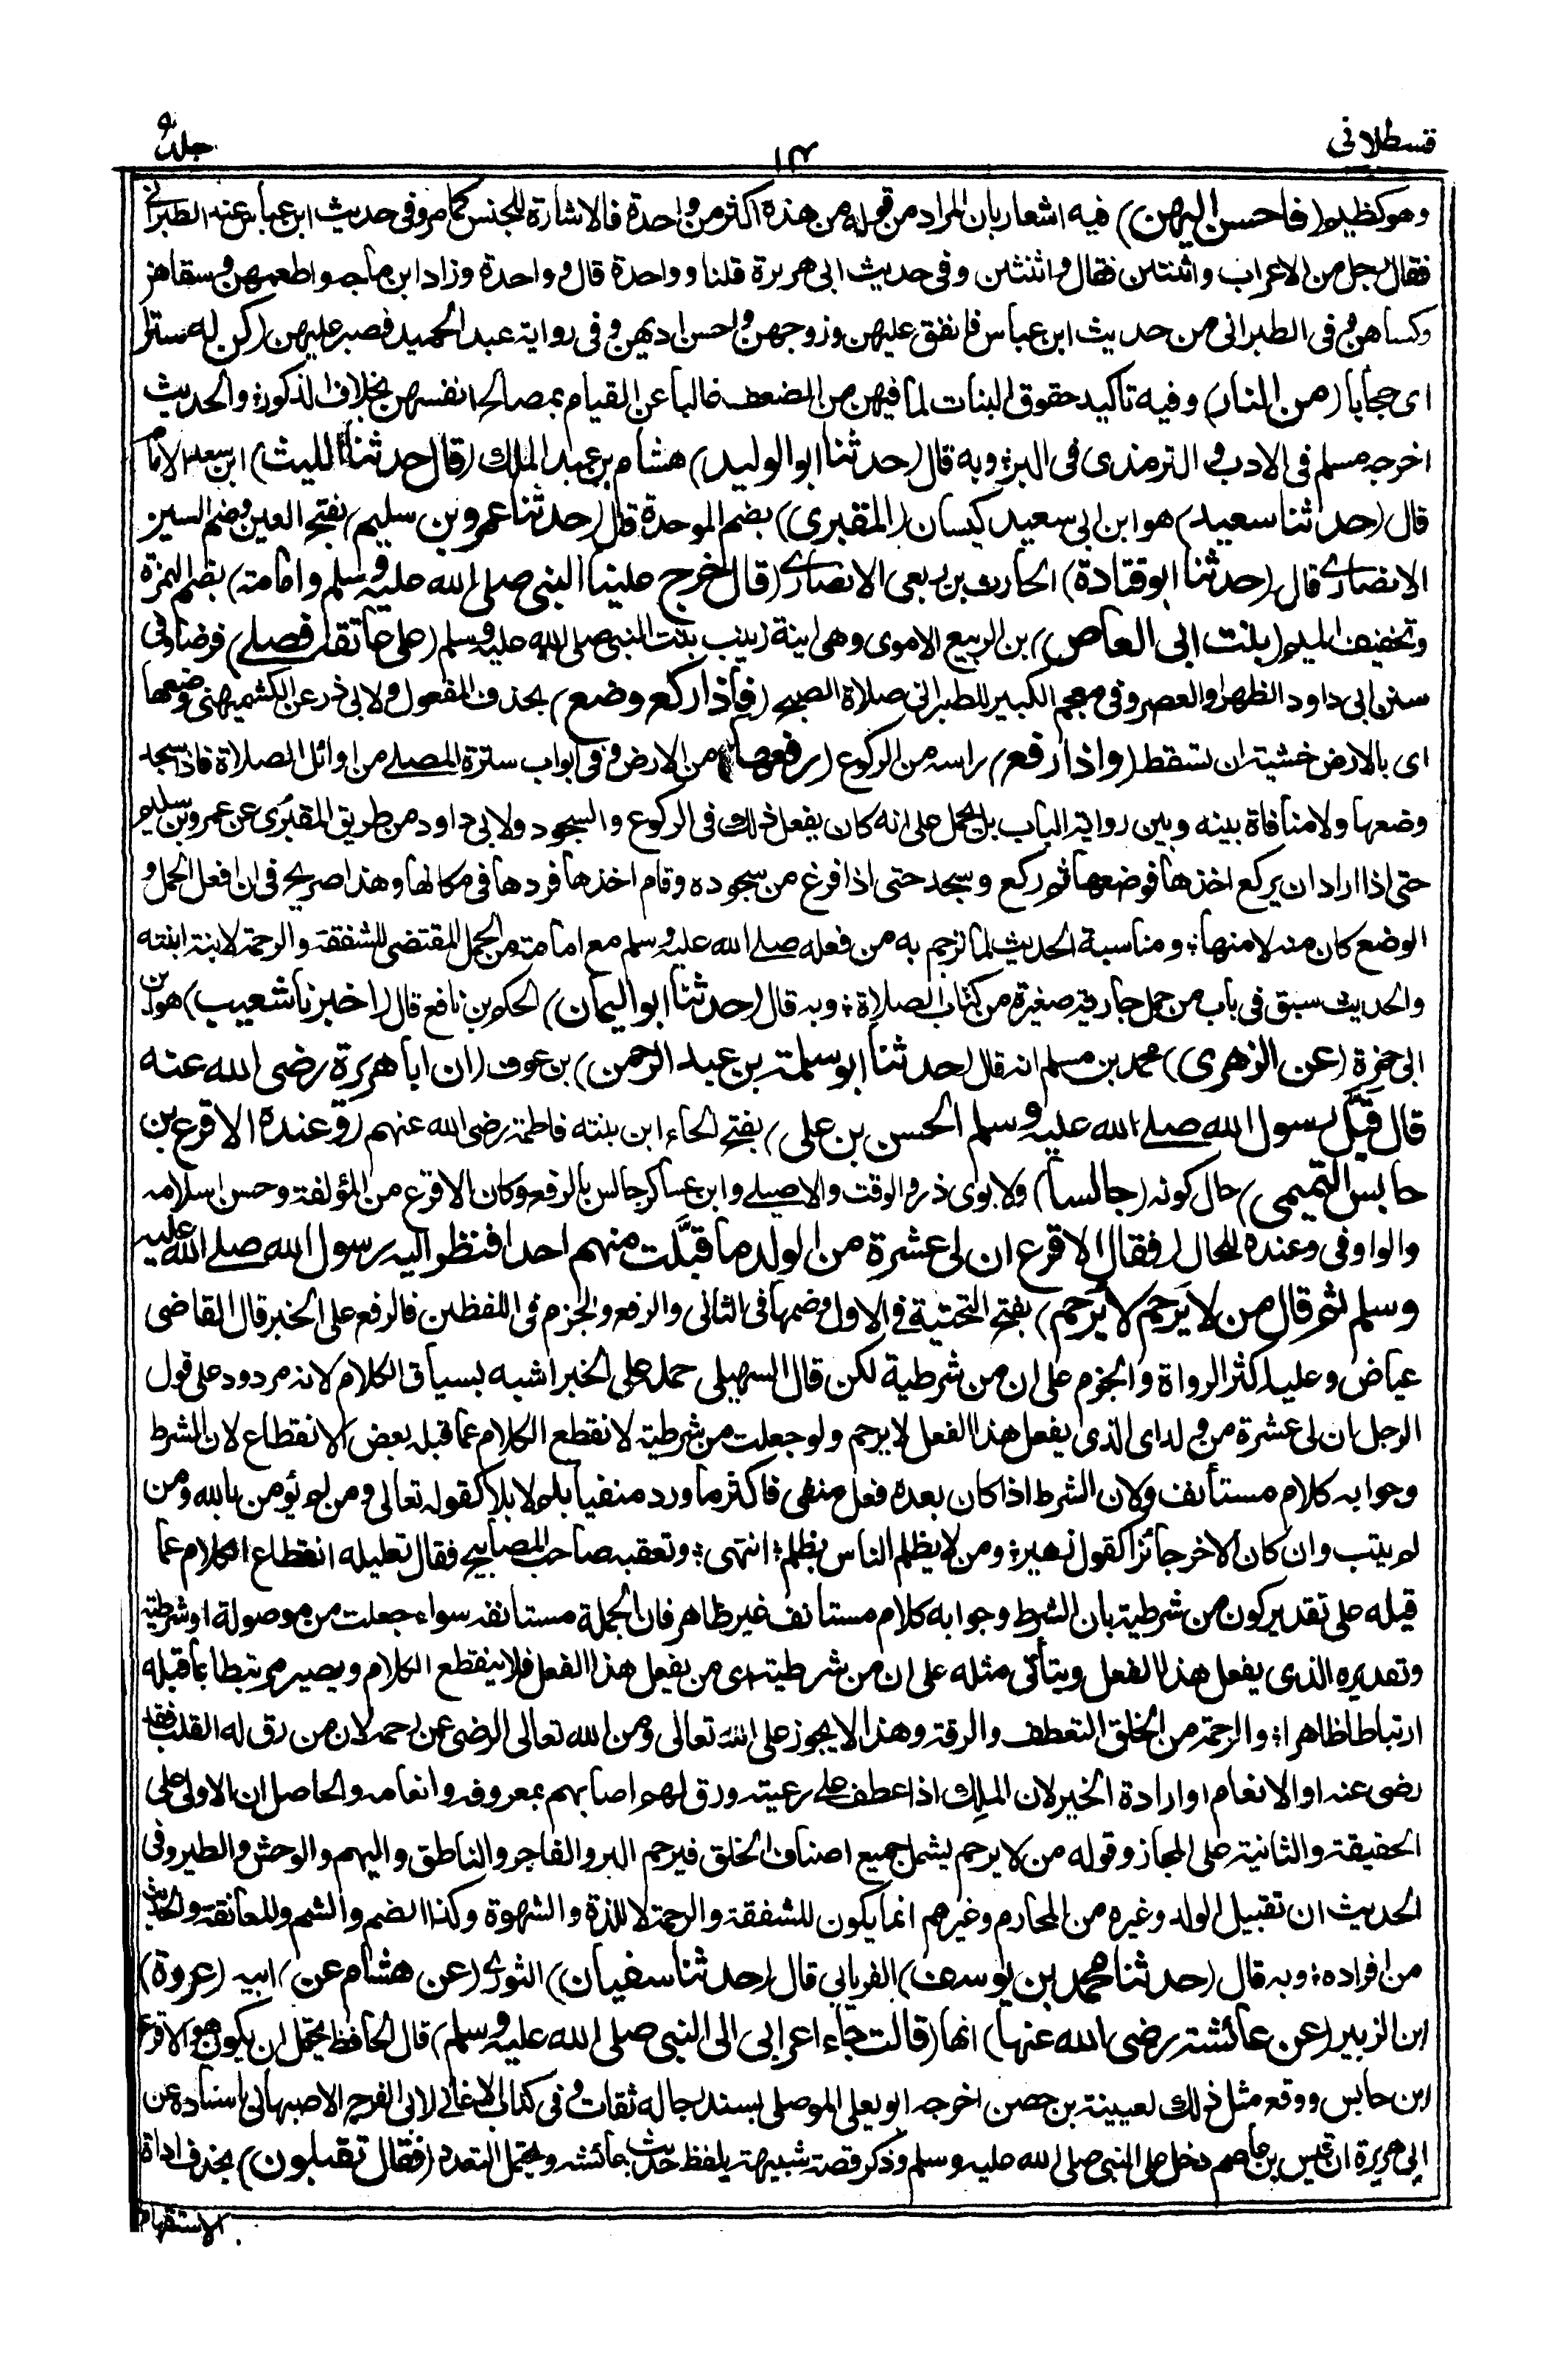 قسطلانی
جلد ۹
۱۴
وهو كظيم (فاحسن اليهن) فيه اشعار بان المراد من قوله من هذه اكثر من واحدة فالاشارة للجنس كما مر وفى حديث ابن عباس عند الطبرانى
فقال رجل من الاعراب واثنتين فقال واثنتين وفى حديث ابى هريرة قلنا وواحدة قال وواحدة وزاد ابن ماجه واطعمهن وسقاهن
وكساهن وفى الطبرانى من حديث ابن عباس فانفق عليهن وزوجهن واحسن ادبهن وفى رواية عبد الحميد فصبر عليهن (كن له سترا
اى حجابا (من النار) وفيه تاكيد حقوق البنات لما فيهن من الضعف غالبا عن القيام بمصالح انفسهن بخلاف الذكور؛ والحديث
اخرجه مسلم فى الادب والترمذى فى البر؛ وبه قال (حدثنا ابو الوليد) هشام بن عبد الملك (قال حدثنا الليث) ابن سعد الامام
قال (حدثنا سعيد) هو ابن ابى سعيد كيسان (المقبرى) بضم الموحدة قال (حدثنا عمرو بن سليم) بفتح العين وضم السين
الانصارى قال (حدثنا ابو قتادة) الحارث بن ربعى الانصارى (قال خرج علينا النبى صلى الله عليه وسلم وامامة) بضم الهمزة
وتخفيف الميم (بنت ابى العاص) بن الربيع الاموى وهى ابنة زينب بنت النبى صلى الله عليه وسلم (على عاتقه فصلى) فرضا وفى
سنن ابى داود الظهر او العصر وفى معجم الكبير للطبرانى صلاة الصبح (فاذا ركع وضع) بحذف المفعول ولابى ذر عن الكشميهنى وضعها
اى بالارض خشية ان تسقط (واذا رفع) راسه من الركوع (رفعها) من الارض وفى ابواب سترة المصلى من اوائل الصلاة فاذا سجد
وضعها ولا منافاة بينه وبين رواية الباب بل يحمل على انه كان يفعل ذلك فى الركوع والسجود ولابى داود من طريق المقبرى عن عمرو بن سليم
حتى اذا اراد ان يركع اخذها فوضعها ثم ركع وسجد حتى اذا فرغ من سجوده وقام اخذها فردها فى مكانها وهذا صريح فى ان فعل الحمل و
الوضع كان منه لا منها؛ ومناسبة الحديث لما ترجم به من فعله صلى الله عليه وسلم مع امامة من الحمل المقتضى للشفقة والرحمة لابنة ابنته
والحديث سبق فى باب من حمل جارية صغيرة من كتاب الصلاة؛ وبه قال (حدثنا ابو اليمان) الحكم بن نافع قال (اخبرنا شعيب) هو ابن
ابى حمزة (عن الزهرى) محمد بن مسلم انه قال (حدثنا ابو سلمة بن عبد الرحمن) بن عوف (ان ابا هريرة رضى الله عنه
قال قبَّل رسول الله صلى الله عليه وسلم الحسن بن على) بفتح الحاء ابن بنته فاطمة رضى الله عنهم (وعنده الاقرع بن
حابس التميمى) حال كونه (جالسا) ولابوى ذر والوقت والاصيلى وابن عساكر جالس بالرفع وكان الاقرع من المؤلفة وحسن اسلامه
والواو فى وعنده للحال (فقال الاقرع ان لى عشرة من الولد ما قبَّلت منهم احدا فنظر اليه رسول الله صلى الله عليه
وسلم ثم قال من لا يَرحم لا يُرحم) بفتح التحتية فى الاول وضمها فى الثانى والرفع والجزم فى اللفظين فالرفع على الخبر قال القاضى
عياض وعليه اكثر الرواة والجزم على ان من شرطية لكن قال السهيلى حمله على الخبر اشبه بسياق الكلام لانه مردود على قول
الرجل ان لى عشرة من ولد اى الذى يفعل هذا الفعل لا يرحم ولو جعلت من شرطية لانقطع الكلام عما قبله بعض الانقطاع لان الشرط
وجوابه كلام مستأنف ولان الشرط اذا كان بعده فعل منفى فاكثر ما ورد منفيا بلم لا بلا كقوله تعالى ومن لم يؤمن بالله ومن
لم يتب وان كان الاخر جائزا كقول زهير؛ ومن لا يظلم الناس يظلم؛ انتهى؛ وتعقبه صاحب المصابيح فقال تعليله انقطاع الكلام عما
قبله على تقدير كون من شرطية بان الشرط وجوابه كلام مستانف غير ظاهر فان الجملة مستانفه سواء جعلت من موصولة او شرطية
وتقديره الذى يفعل هذا الفعل ويتأتى مثله على ان من شرطية اى من يفعل هذا الفعل فلا ينقطع الكلام ويصير مرتبطا بما قبله
ارتباطا ظاهرا؛ والرحمة من الخلق التعطف والرقة وهذا لا يجوز على الله تعالى ومن الله تعالى الرضى عن رحمه لان من رق له القلب فقد
رضى عنه او الانعام او ارادة الخير لان الملك اذا عطف على رعيته ورق لهم اصابهم بمعروفه وانعامه والحاصل ان الاولى على
الحقيقة والثانية على المجاز وقوله من لا يرحم يشمل جميع اصناف الخلق فيرحم البر والفاجر والناطق والبهم والوحش والطير وفى
الحديث ان تقبيل الولد وغيره من المحارم وغيرهم انما يكون للشفقة والرحمة لا للذة والشهوة وكذا الضم والشم والمعانقة والحديث
من افراده؛ وبه قال (حدثنا محمد بن يوسف) الفريابى قال (حدثنا سفيان) الثورى (عن هشام عن) ابيه (عروة)
ابن الزبير (عن عائشة رضى الله عنها) انها (قالت جاء اعرابى الى النبى صلى الله عليه وسلم) قال الحافظ يحتمل ان يكون هو الاقرع
ابن حابس ووقع مثل ذلك لعيينة بن حصن اخرجه ابو يعلى الموصلى بسند رجاله ثقات وفى كتاب الاغانى لابى الفرج الاصبهانى باسناده عن
ابى هريرة ان قيس بن عاصم دخل على النبى صلى الله عليه وسلم وذكر قصة شبيهة بلفظ حديث عائشة ويحتمل التعدد (فقال تقبلون) بحذف اداة
الاستفهام